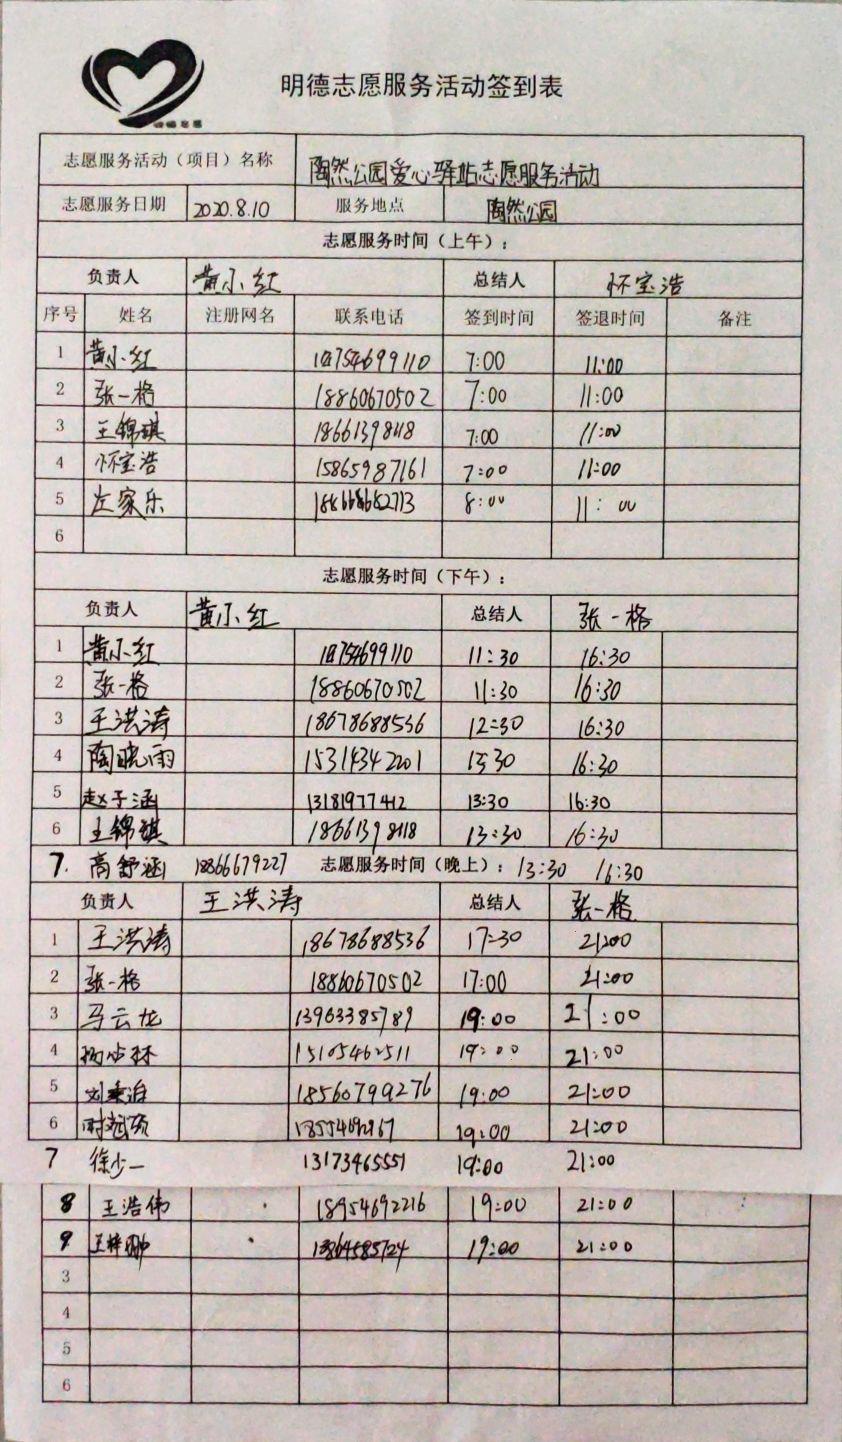 明德志愿服务活动签到表
志愿服务活动（项目）名称 陶然公园爱心驿站志愿服务活动
志愿服务日期 2020.8.10 服务地点 陶然公园
志愿服务时间（上午）：
负责人 黄小红 总结人 怀宝浩
序号 姓名 注册网名 联系电话 签到时间 签退时间 备注
1 黄小红 7:00 11:00
2 张一格 18860670502 7:00 11:00
3 王锦琪 18661398118 7:00 11:00
4 怀宝浩 15865987161 7:00 11:00
5 左家乐 18866862713 8:00 11:00
6
志愿服务时间（下午）：
负责人 黄小红 总结人 张一格
1 黄小红 11:30 16:30
2 张一格 18860670502 11:30 16:30
3 王洪涛 18678688536 12:30 16:30
4 陶晓雨 15314342201 16:30
5 赵子涵 13181977412 13:30 16:30
6 王锦琪 18661398118 13:30 16:30
7. 高舒涵 18866679227 志愿服务时间（晚上）： 13:30 16:30
负责人 王洪涛 总结人 张一格
1 王洪涛 18678688536 17:30 21:00
2 张一格 18860670502 17:00 21:00
3 马云龙 13963385789 19:00 21:00
4 15105462511 19:00 21:00
5 18560799276 19:00 21:00
6 19:00 21:00
7 徐少一 13173465551 19:00 21:00
8 王浩伟 18954692216 19:00 21:00
9 19:00 21:00
3
4
5
6